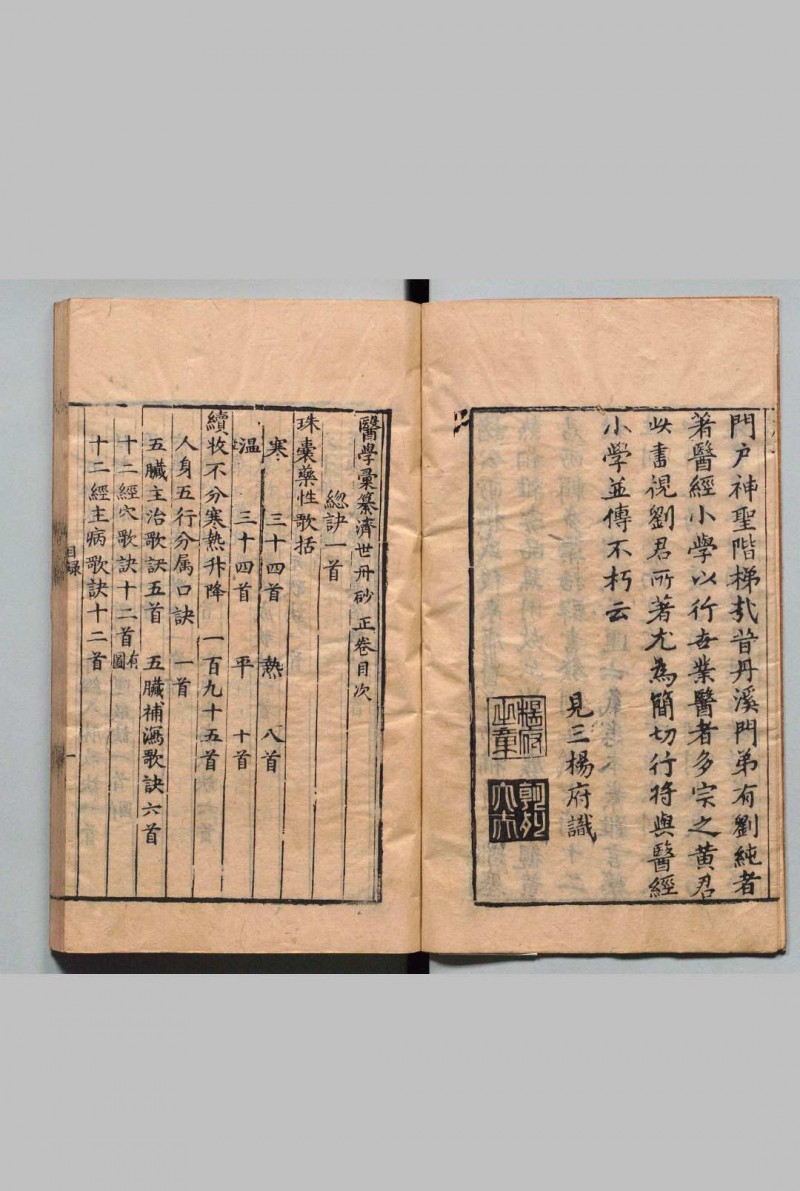 門戶神聖階梯哉昔丹溪門弟有劉純者
著醫經小學以行世業醫者多宗之黃君
此書視劉君所著尤為簡切行將與醫經
小學並傳不朽云
見三楊府識
楊府
之章
醫學彙纂濟世丹砂 正卷目次
總訣一首
珠囊藥性歌括
寒 三十四首 熱 八首
温 三十四首 平 十首
續收不分寒熱升降 一百九十五首
人身五行分属口訣 一首
五臟主治歌訣五首 五臟補瀉歌訣六首
十二經穴歌訣十二首有圖
十二經主病歌訣十二首
目錄
一